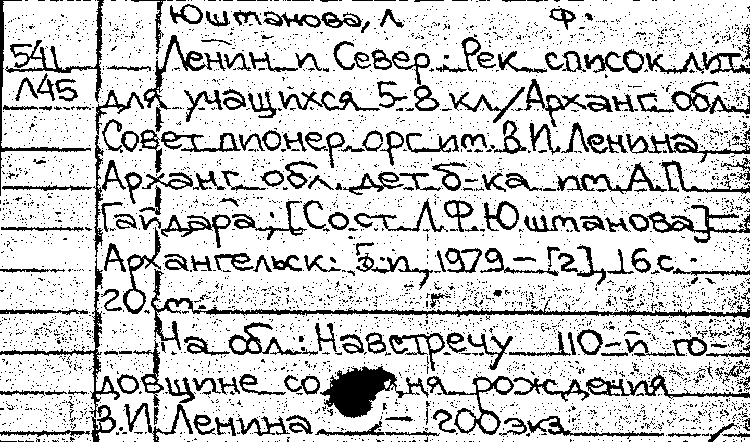 Юштанова, Л. Ф.
541 Ленин и Север: Рек список лит.
Л45 для учащихся 5-8 кл./Арханг. обл.
Совет пионер. орг им. В.И. Ленина,
Арханг. обл. дет б-ка им. А.П.
Гайдара; [Сост. Л.Ф. Юштанова]
Архангельск: Б.и., 1979. – [2], 16 с.;
20 см.
На обл.: Навстречу 110-й го-
довщине со дня рождения
В.И. Ленина – 200 экз.